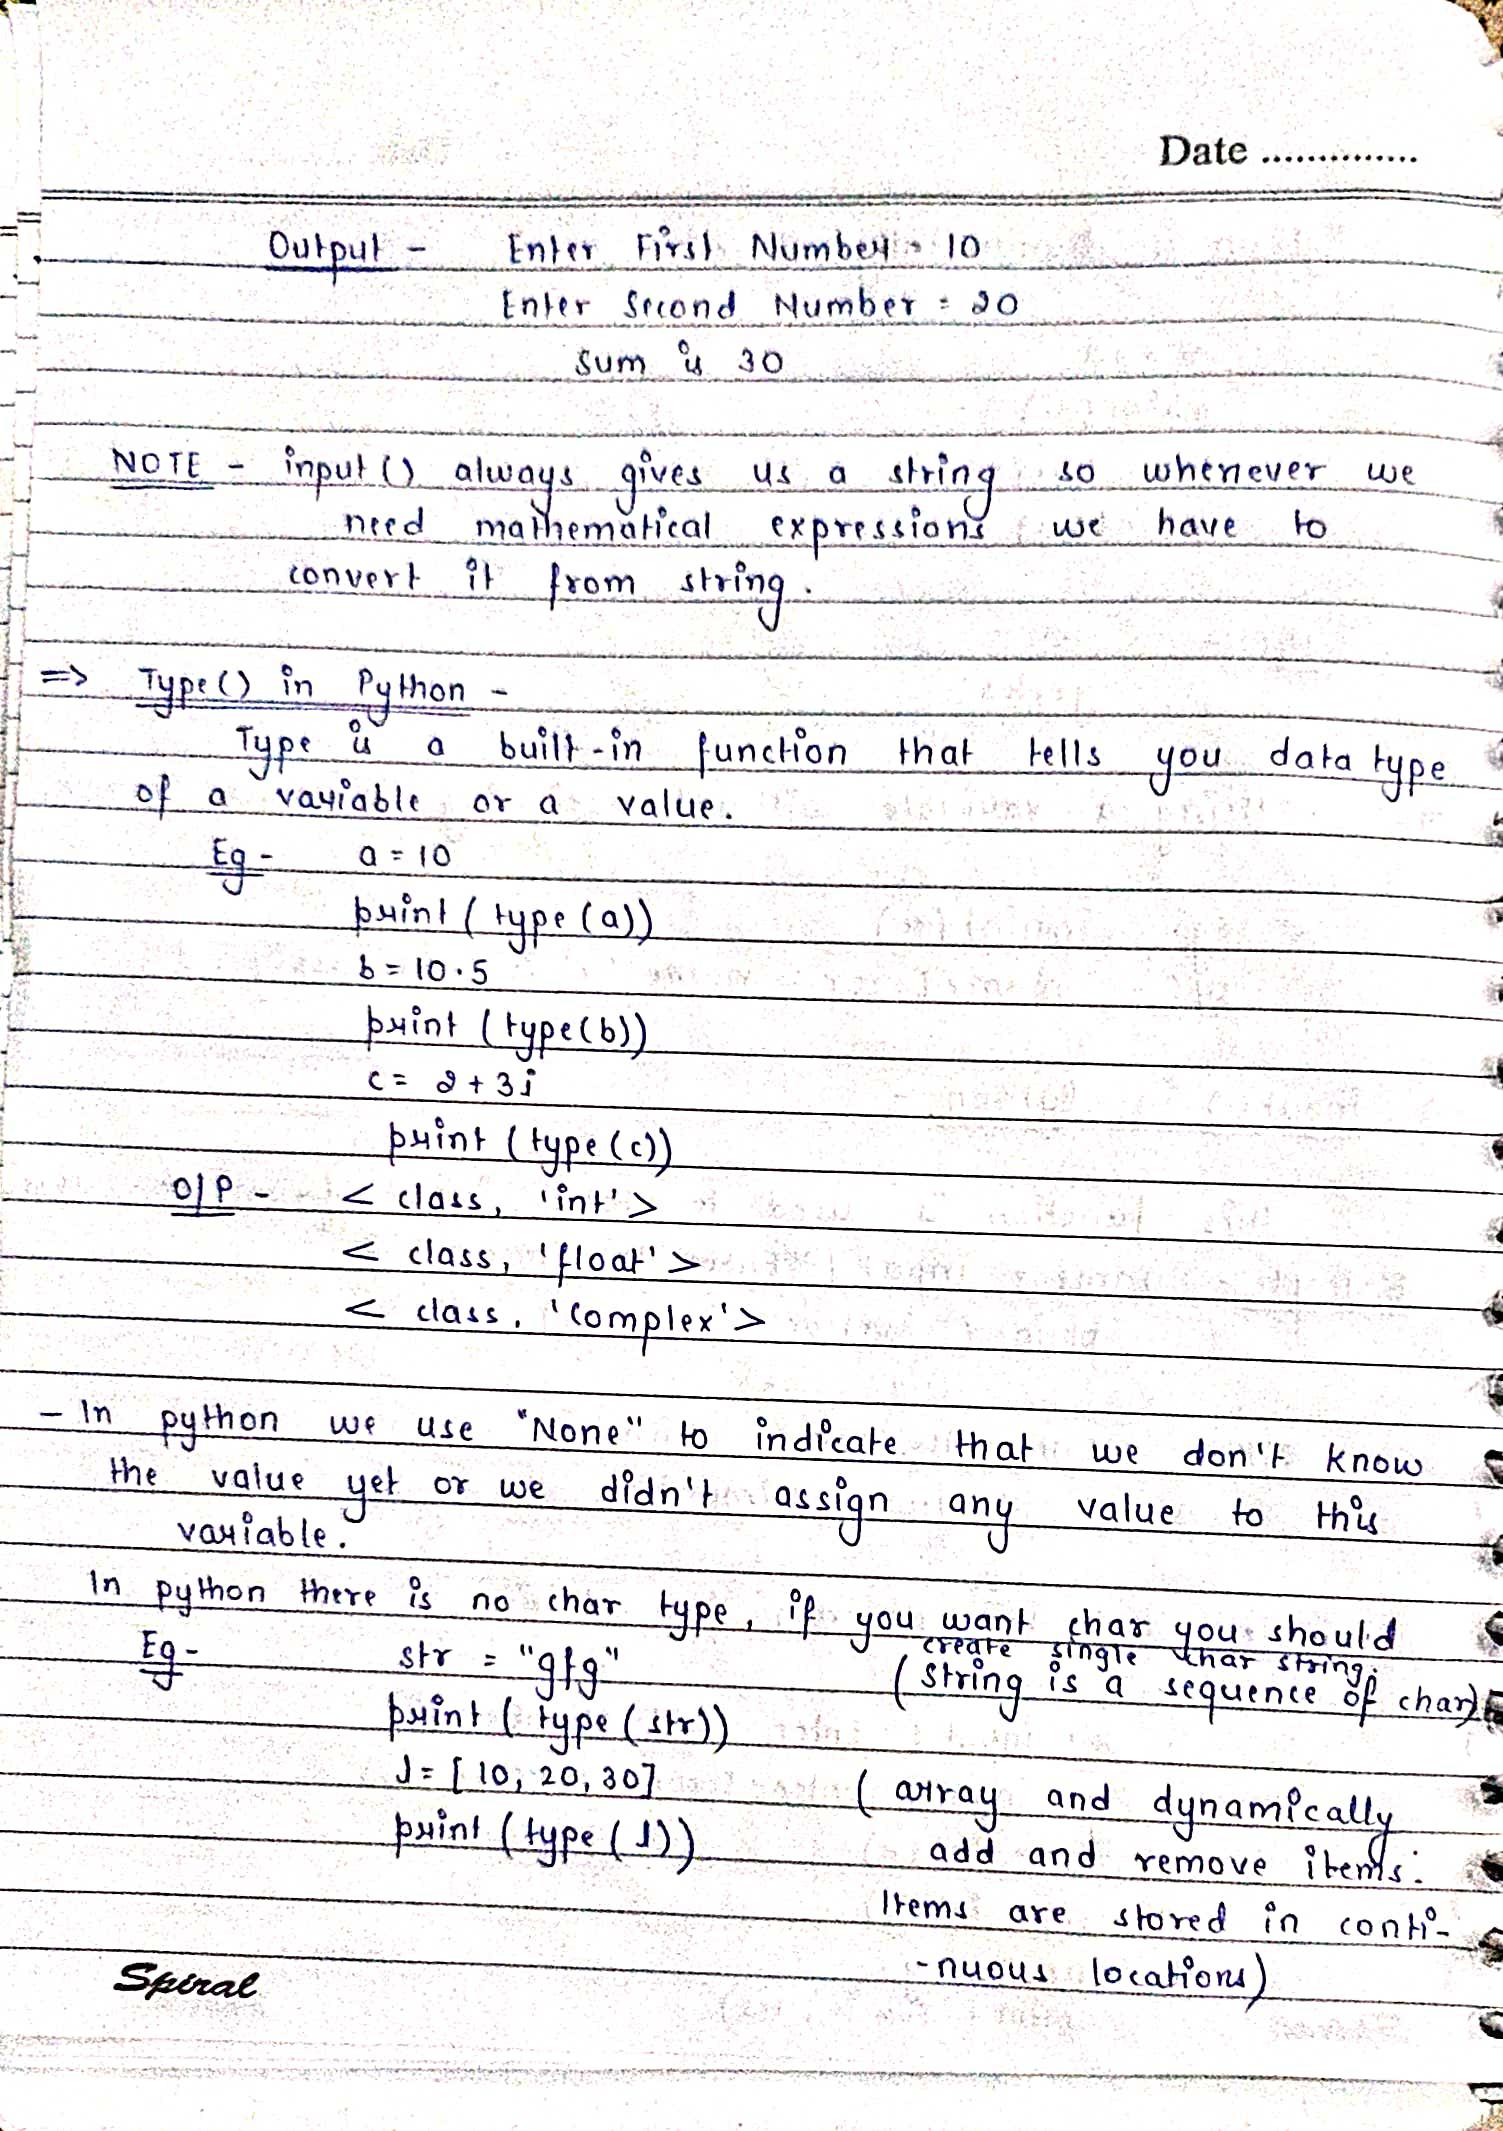 Date ...............
Output - Enter First Number = 10
Enter Second Number = 20
sum is 30
NOTE - input () always gives us a string so whenever we
need mathematical expressions we have to
convert it from string.
=> Type() in Python -
Type is a built-in function that tells you data type
of a variable or a value.
Eg - a = 10
print ( type (a))
b = 10.5
print (type(b))
c = 2 + 3j
print (type (c))
O/P - < class, 'int' >
< class, 'float' >
< class, 'complex' >
- In python we use "None" to indicate that we don't know
the value yet or we didn't assign any value to this
variable.
In python there is no char type, if you want char you should
create single char string.
Eg - str = "gfg" (string is a sequence of char)
print ( type ( str))
l = [ 10, 20, 30] ( array and dynamically
print ( type ( l)) add and remove items.
Items are stored in conti-
-nuous locations)
Spiral